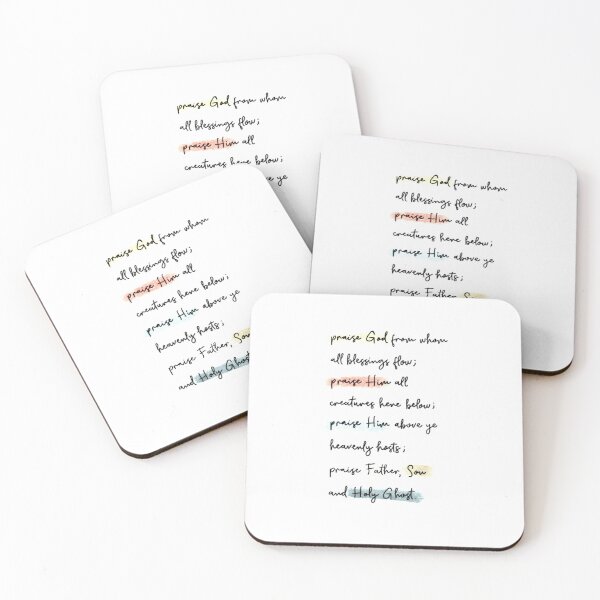 praise God from whom
all blessings flow;
praise Him all
creatures here below;
ye
praise God from whom
all blessings flow;
praise Him all
creatures here below;
praise Him above ye
heavenly hosts;
praise Father, Son
praise God from whom
all blessings flow;
praise Him all
creatures here below;
praise Him above ye
heavenly hosts;
praise Father, Son
and Holy Ghost
praise God from whom
all blessings flow;
praise Him all
creatures here below;
praise Him above ye
heavenly hosts;
praise Father, Son
and Holy Ghost.